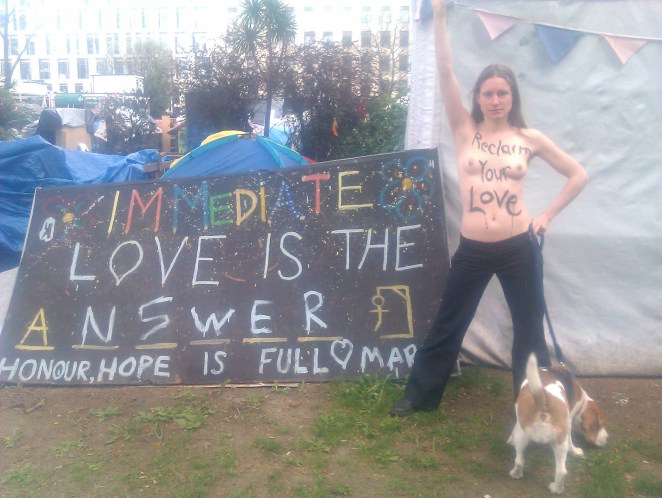 IMMEDIATE
LOVE IS THE
ANSWER
HONOUR, HOPE IS FULL MAP
Reclaim
Your
Love